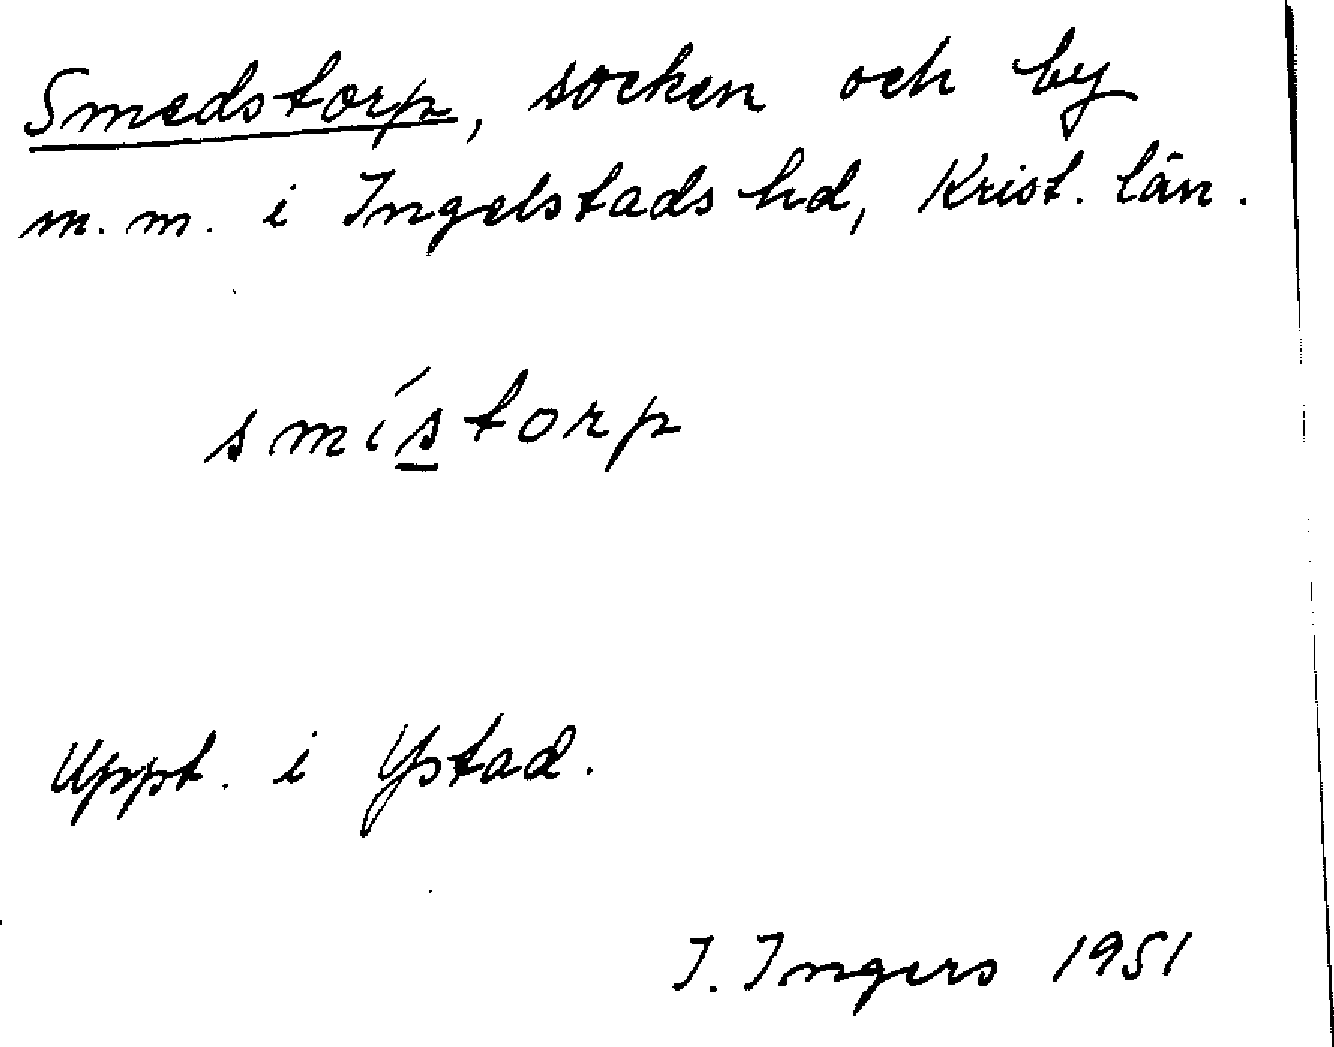 Smedstorp, socken och by
m.m. i Ingelstads hd, Krist. län.
smístorp
Uppt. i Ystad.
I. Ingers 1951